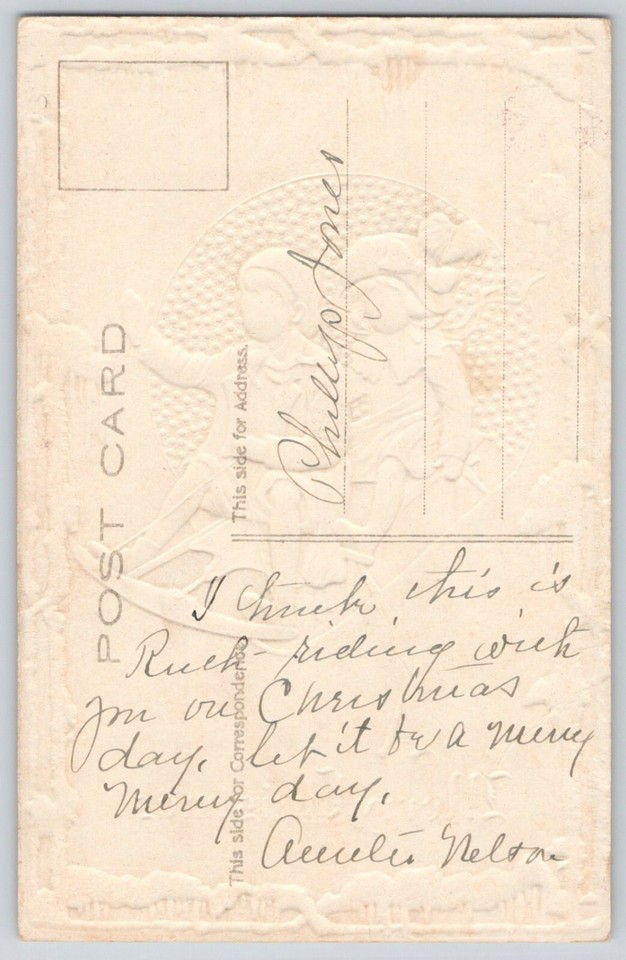 POST CARD
This side for Address.
Phillip Jones
This side for Correspondence
I think this is
Ruth - riding with
you on Christmas
day, let it be a merry
merry day.
Nelson